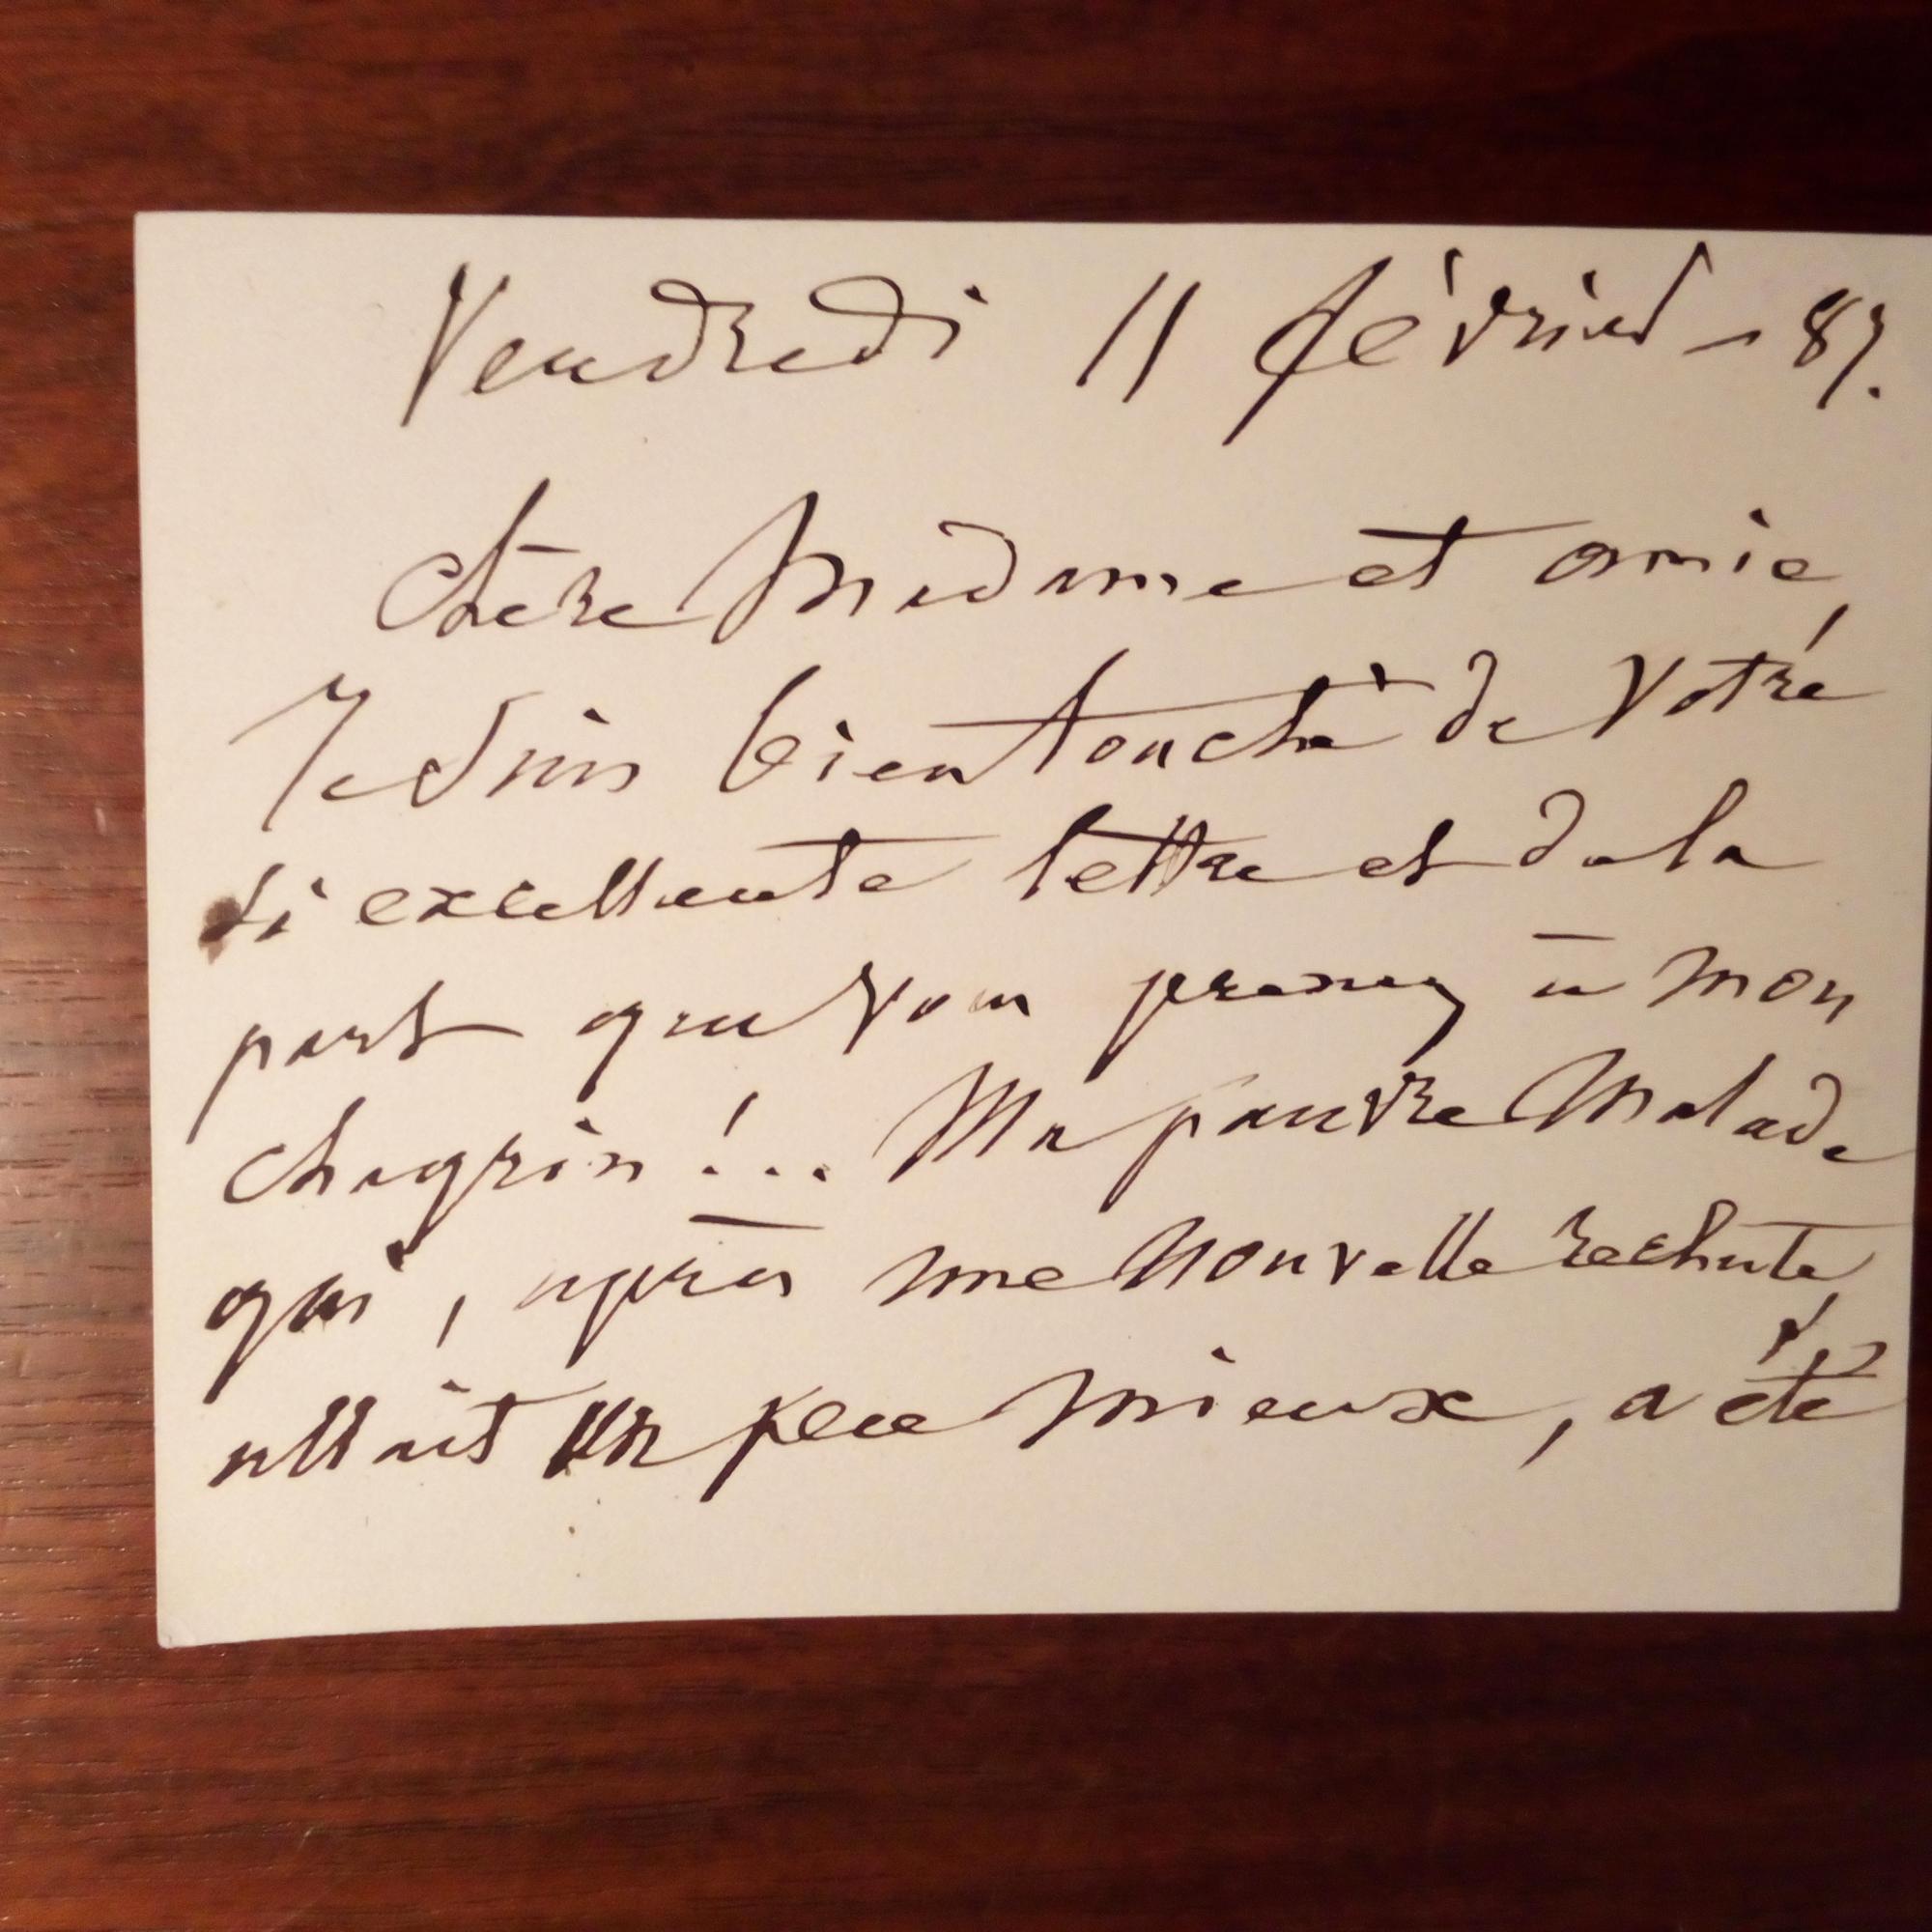 Vendredi 11 février - 87.
Chère Madame et amie,
Je suis bien touché de votre
si excellente lettre et de la
part que vous prenez à mon
chagrin !... Ma pauvre Malade
qui, après une nouvelle rechute,
allait un peu mieux, a été